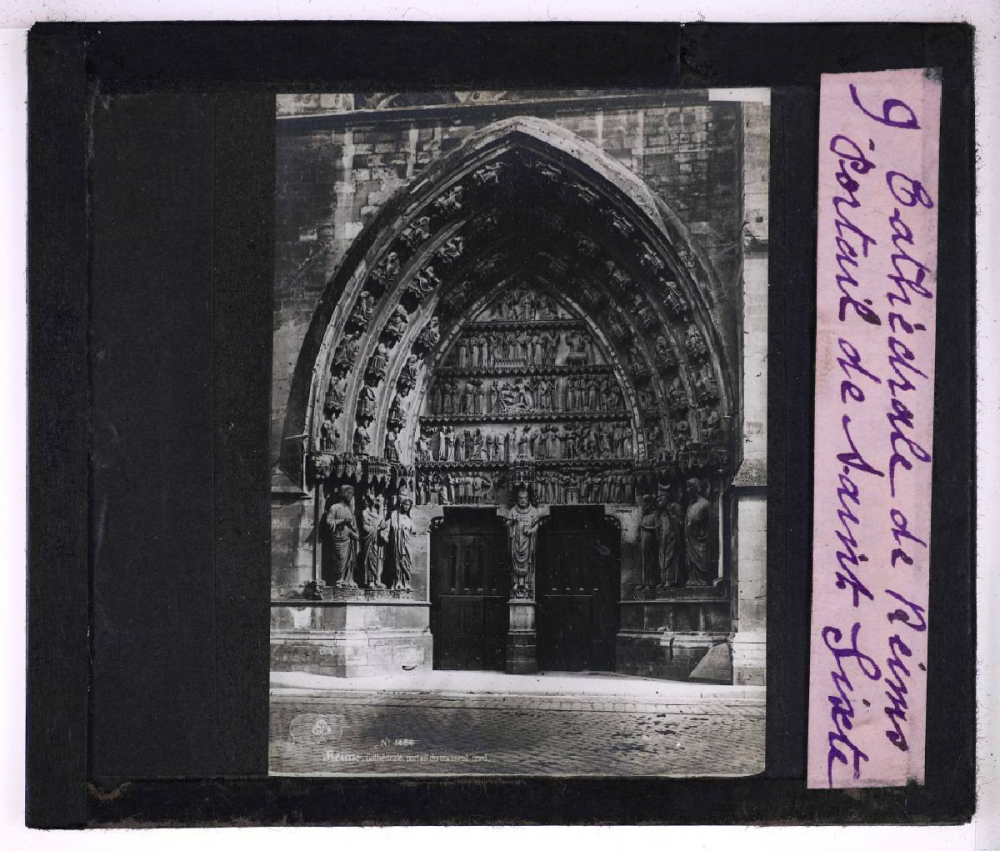 9 Cathédrale de Reims
Portail de Saint Sixte
No 1486
Reims cathédrale, portail du transept nord.